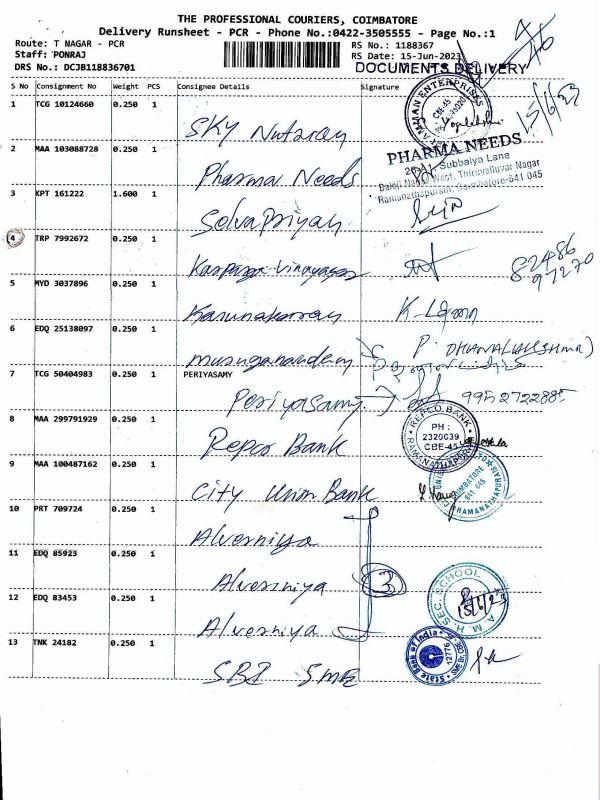 THE PROFESSIONAL COURIERS, COIMBATORE
Delivery Runsheet - PCR - Phone No.:0422-3505555 - Page No.:1
Route: T NAGAR - PCR
RS No.: 1188367
Staff: PONRAJ
RS Date: 15-Jun-2023
DRS No.: DCJB118836701
DOCUMENTS DELIVERY
15/6/23
S No Consignment No Weight PCS Consignee Details Signature
1 TCG 10124660 0.250 1
SKY Nutaray
ENTERPRISES
CBE-45
2 MAA 103088728 0.250 1
Pharma Needs
PHARMA NEEDS
Subbaiya Lane
Balaji Nagar West, Thiruvalluvar Nagar
Ramanathapuram, Coimbatore-641 045
3 KPT 161222 1.600 1
Selvapriyan
4 TRP 7992672 0.250 1
Karpaga Vinayagar
82486
97270
5 MYD 3037896 0.250 1
Karunakaran
6 EDQ 25138097 0.250 1
Muruganandam
P. DHANALAKSHMI
7 TCG 50404983 0.250 1 PERIYASAMY
Periyasamy
8 MAA 299791929 0.250 1
Repco Bank
REPCO BANK
PH :
2320039
CBE-45
RAMANATHAPURAM
9 MAA 100487162 0.250 1
City Union Bank
COIMBATORE
641 045
RAMANATHAPURAM
10 PRT 709724 0.250 1
Alverniya
11 EDQ 85923 0.250 1
Alverniya
3
12 EDQ 83453 0.250 1
Alverniya
A. M. H. SEC. SCHOOL
15/6/23
13 TNK 24182 0.250 1
SBI SME
State Bank of India
12776